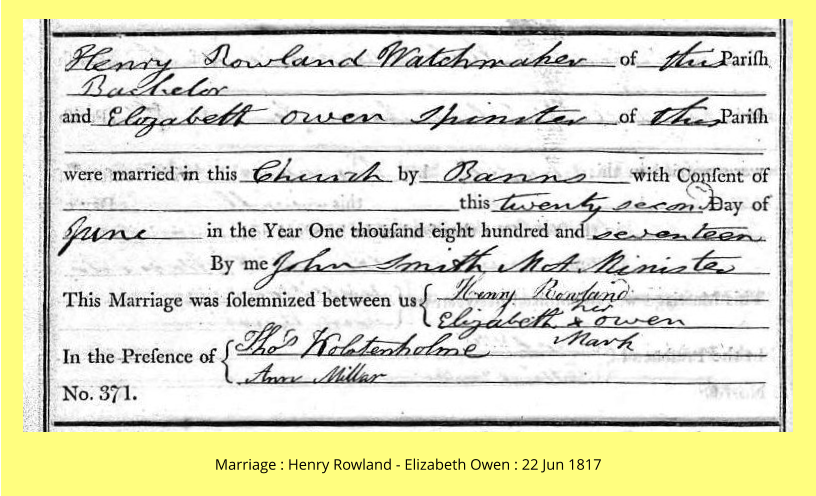 Henry Rowland Watchmaker of this Pariſh
Bachelor
and Elizabeth Owen Spinster of this Pariſh
were married in this Church by Banns with Conſent of
this twenty second Day of
June in the Year One thouſand eight hundred and seventeen
By me John Smith M A Minister
This Marriage was ſolemnized between us { Henry Rowland
her
Elizabeth x Owen
Mark
In the Preſence of { Thos Wolstenholme
Ann Millar
No. 371.
Marriage : Henry Rowland - Elizabeth Owen : 22 Jun 1817